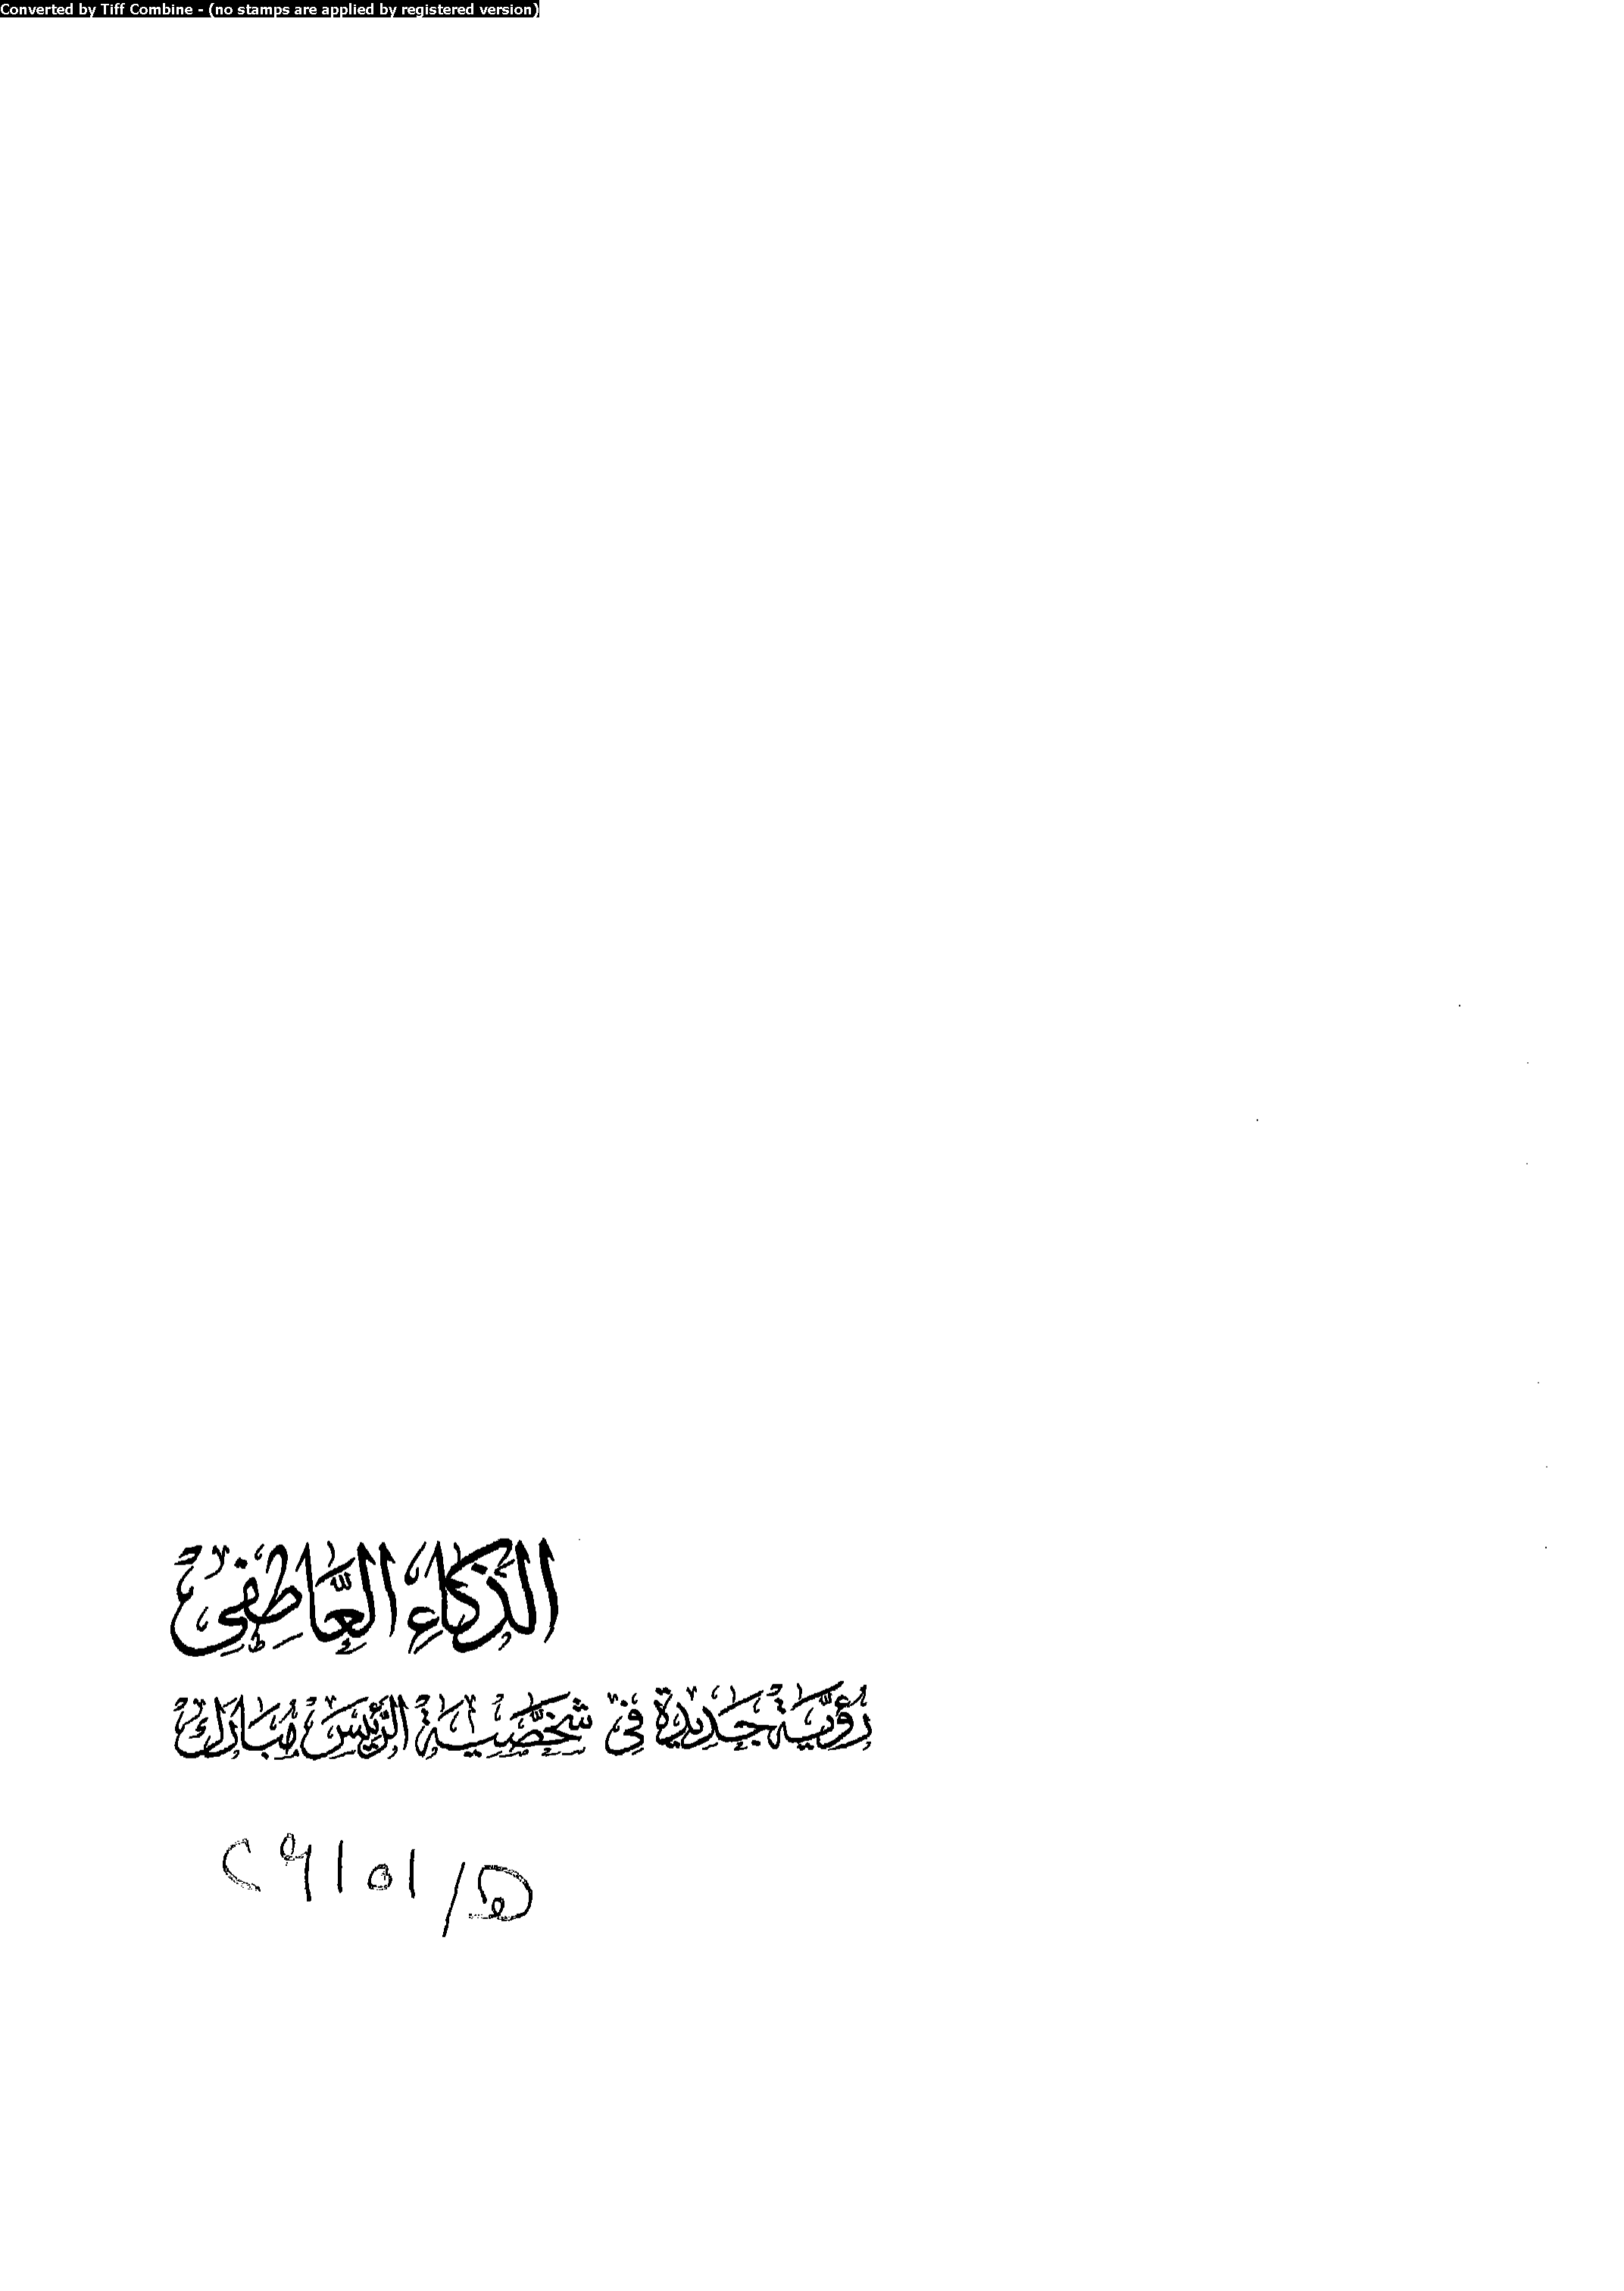 Converted by Tiff Combine - (no stamps are applied by registered version)
الذكاء العاطفى
رؤية جديدة فى شخصية الرئيس مبارك